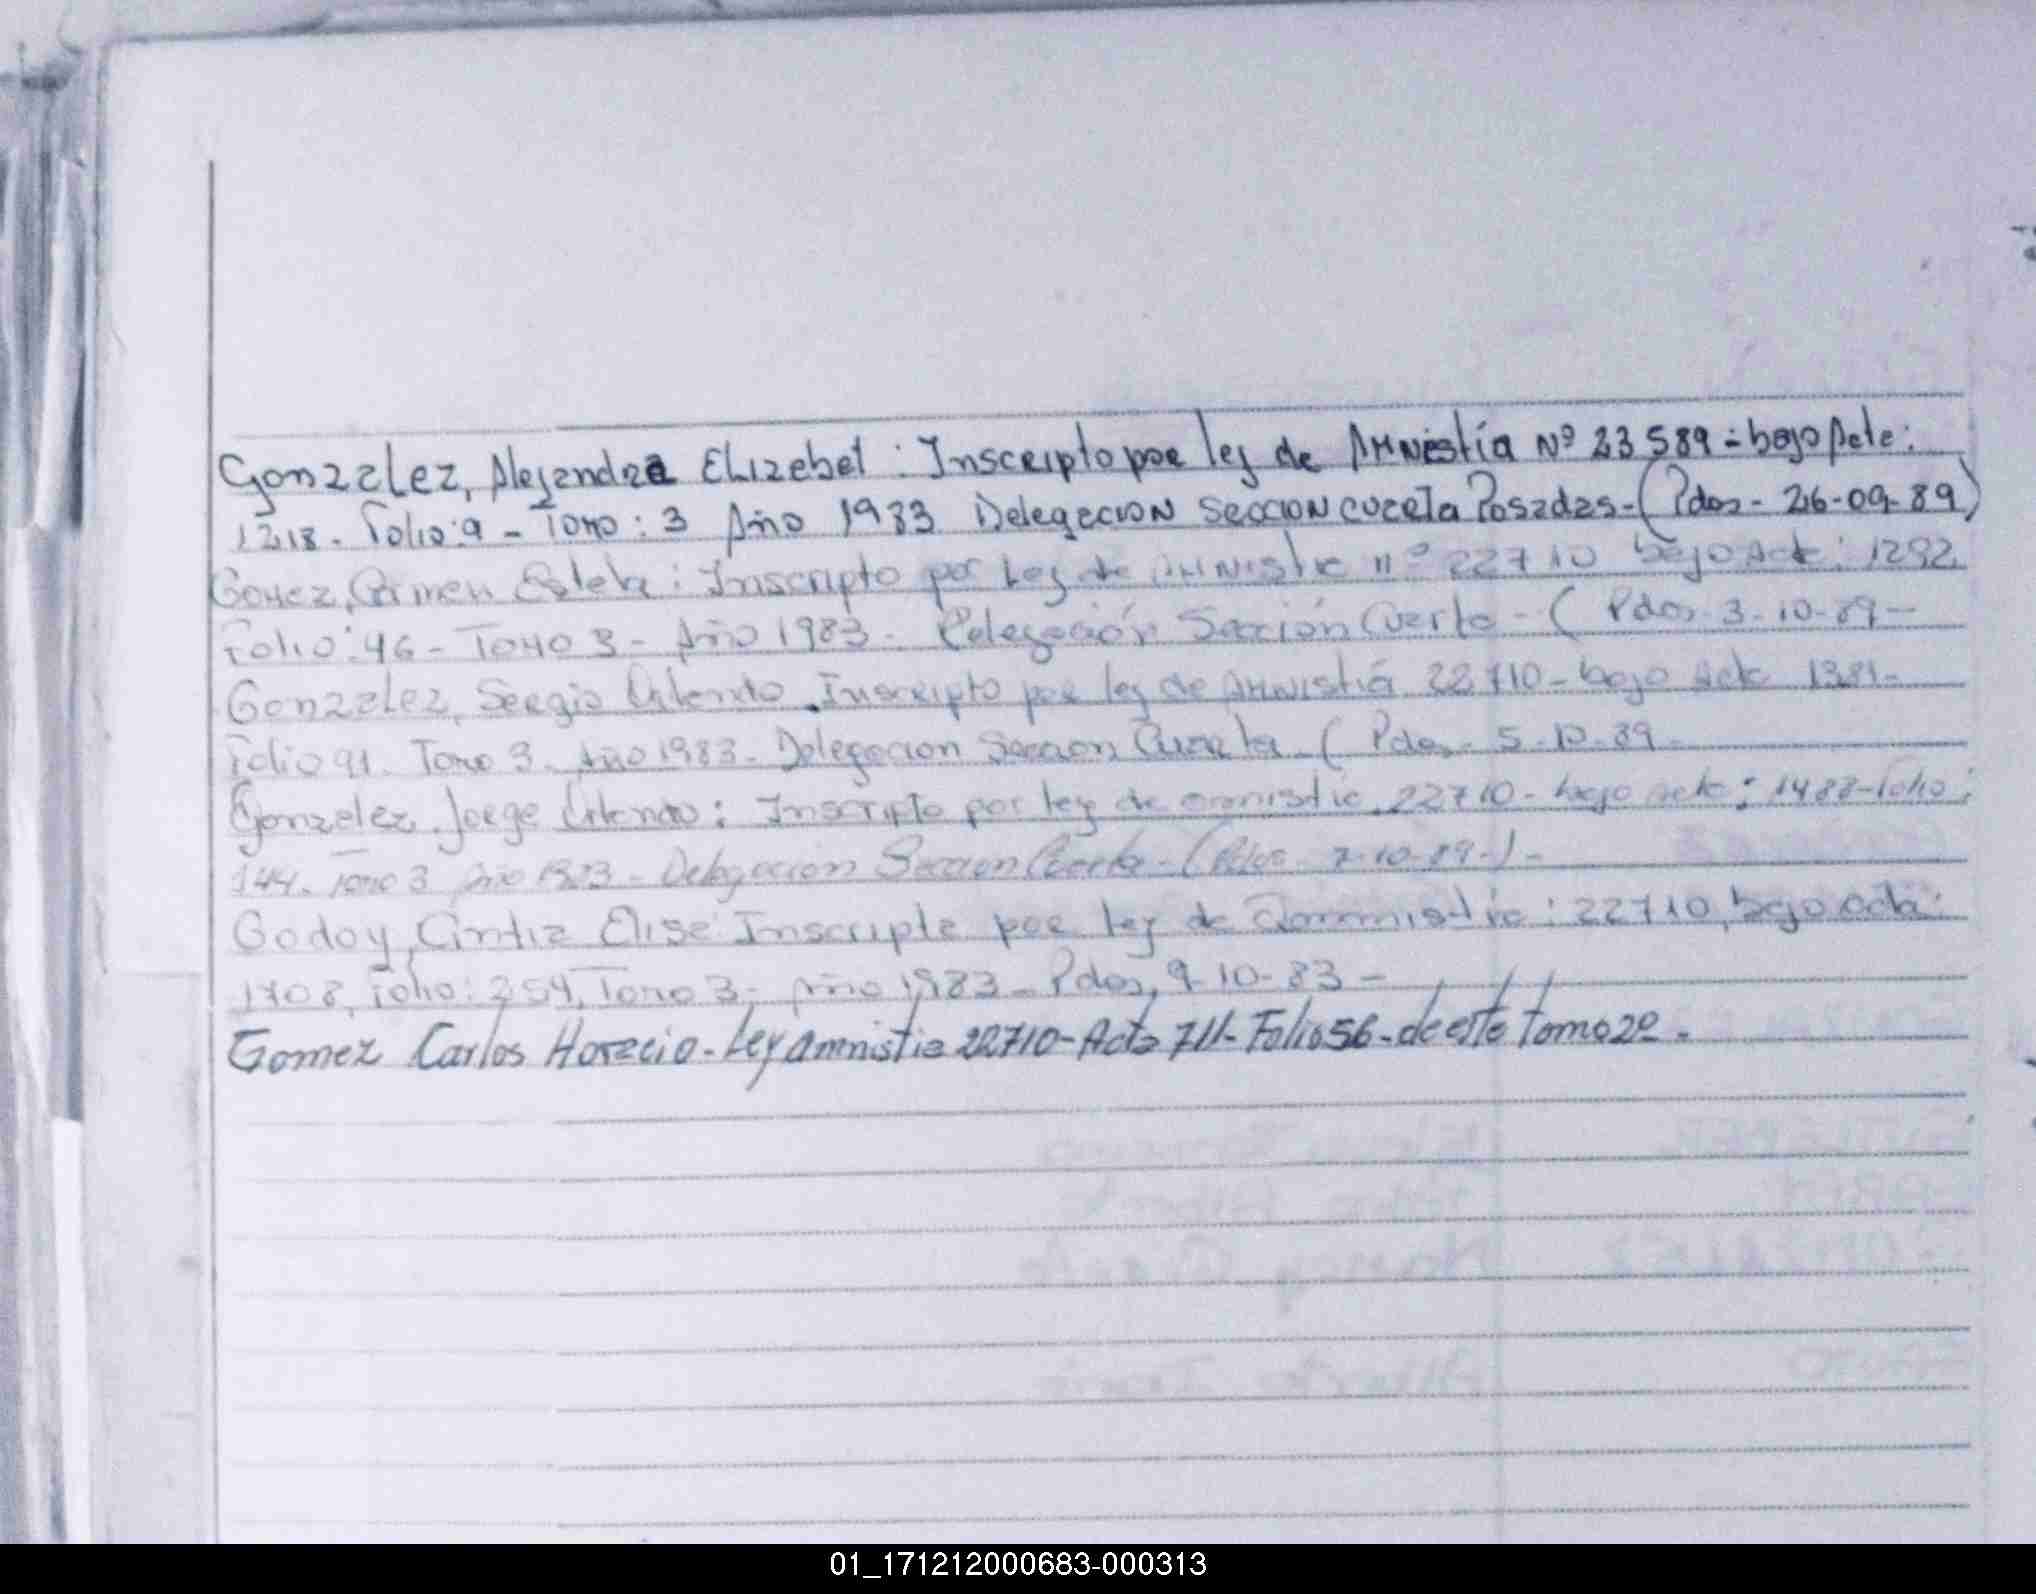 Gonzalez, Alejandra Elizabet : Inscripto por ley de Amnistía Nº 23589 - bajo Acta :
1218 - Folio : 9 - Tomo : 3 Año 1983 Delegacion Seccion cuarta Posadas - (Pdas - 26-09-89)
Gomez, Carmen Estela : Inscripto por Ley de Amnistia nº 22710 bajo Acta : 1292
Folio : 46 - Tomo 3 - Año 1983 - Delegación Sección Cuarta - ( Pdas 3-10-89 -
Gonzalez, Sergio Orlando . Inscripto por ley de Amnistiá 22710 - bajo Acta 1381 -
Folio 91 - Tomo 3 - Año 1983 - Delegacion Seccion Cuarta ( Pdas - 5-10-89 -
Gonzalez, Jorge Orlando : Inscripto por ley de amnistia 22710 - bajo acta : 1488 - Folio :
144 - Tomo 3 Año 1983 - Delegacion Seccion Cuarta - (Pdas 7-10-89-) -
Godoy, Cintia Elisa Inscripta por ley de amnistia : 22710, bajo acta :
1708, Folio : 254, Tomo 3 - Año 1983 - Pdas, 9-10-83 -
Gomez Carlos Horacio - Ley amnistia 22710 - Acta 711 - Folio 56 - de este tomo 2º -
01_171212000683-000313